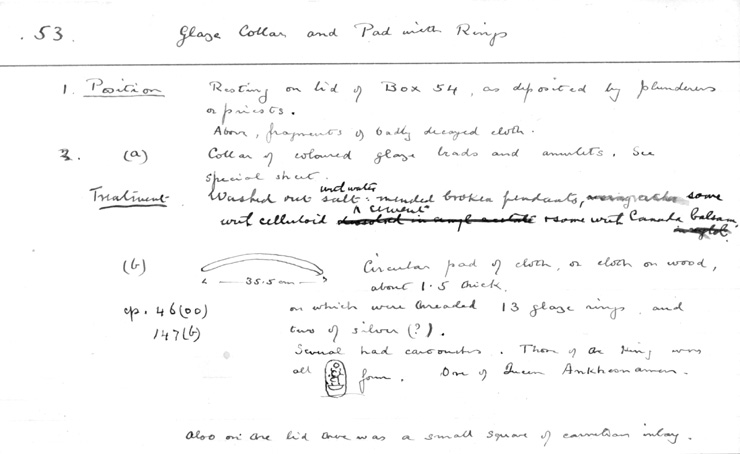 . 53. Glaze Collar and Pad with Rings
1. Position Resting on lid of Box 54, as deposited by plunderers
or priests.
Above, fragments of badly decayed cloth.
3. (a) Collar of coloured glaze beads and amulets. See
special sheet.
Treatment. Washed out salt with water mended broken pendants, some
with celluloid cement dissolved in amyl acetate & some with Canada balsam
in xylol.
(b) 35.5 cm Circular pad of cloth, or cloth on wood,
about 1.5 thick.
cp. 46(oo) on which were threaded 13 glaze rings, and
147(b) two of silver (?).
Several had cartouches. Those of the King were
all form. One of Queen Ankhesnamen.
Also on the lid there was a small square of carnelian inlay.